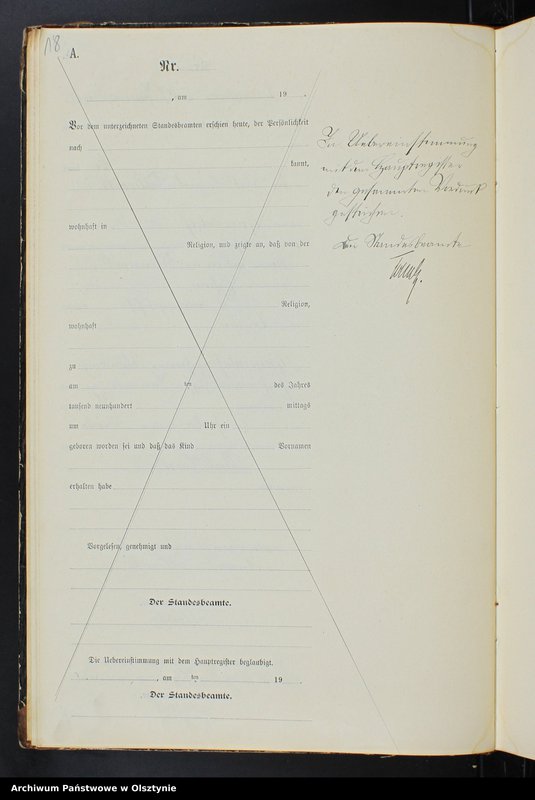 18
A.
Nr.
, am 19 .
Vor dem unterzeichneten Standesbeamten erschien heute, der Persönlichkeit
nach
kannt,
wohnhaft in
Religion, und zeigte an, daß von der
Religion,
wohnhaft
zu
am ten des Jahres
tausend neunhundert mittags
um Uhr ein
geboren worden sei und daß das Kind Vornamen
erhalten habe
Vorgelesen, genehmigt und
Der Standesbeamte.
Die Uebereinstimmung mit dem Hauptregister beglaubigt.
, am ten 19 .
Der Standesbeamte.
In Uebereinstimmung
mit dem Hauptregister
den gesammten Vordruck
gestrichen.
Der Standesbeamte
Archiwum Państwowe w Olsztynie